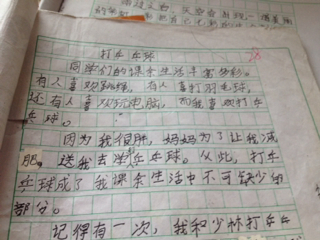 打乒乓球
同学们的课余生活丰富多彩。
有人喜欢跳绳，有人喜打羽毛球，
还有人喜欢玩电脑，而我喜欢打乒
乓球。
因为我很胖，妈妈为了让我减
肥，送我去学乒乓球。从此，打乒
乓球成了我课余生活中不可缺少的
部分。
记得有一次，我和少林打乒乓